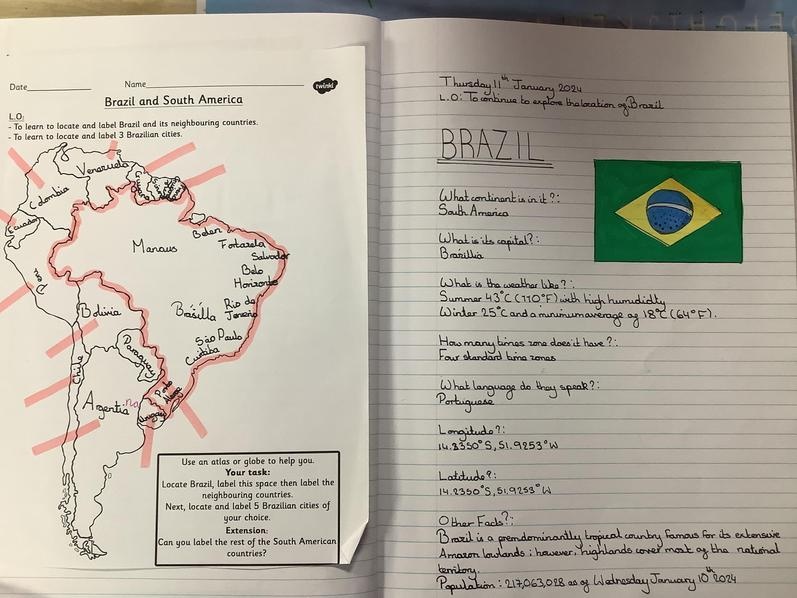 Date__________ Name______________________________
twinkl
Brazil and South America
L.O:
- To learn to locate and label Brazil and its neighbouring countries.
- To learn to locate and label 3 Brazilian cities.
Venezuela
Colombia
Ecuador
Belen
Manaus
Fortarela
Salvador
Belo
Horizonte
Bolivia
Brasília
Rio de
Janeiro
São Paulo
Curitiba
Paraguay
Chile
Porto
Alegre
Argentina
Uruguay
Use an atlas or globe to help you.
Your task:
Locate Brazil, label this space then label the
neighbouring countries.
Next, locate and label 5 Brazilian cities of
your choice.
Extension:
Can you label the rest of the South American
countries?
Thursday 11th January 2024
L.O: To continue to explore the location of Brazil
BRAZIL
What continent is in it?:
South America
What is its capital?:
Brasillia
What is the weather like?:
Summer 43°C (110°F) with high humidity
Winter 25°C and a minimum average of 18°C (64°F).
How many times zone does it have?:
Four standard time zones
What language do they speak?:
Portuguese
Longitude?:
14.3350°S, 51.9253°W
Latitude?:
14.2350°S, 51.9253°W
Other Facts?:
Brazil is a predominantly tropical country famous for its extensive
Amazon lowlands; however, highlands cover most of the national
territory.
Population: 217,063,028 as of Wednesday January 10th 2024